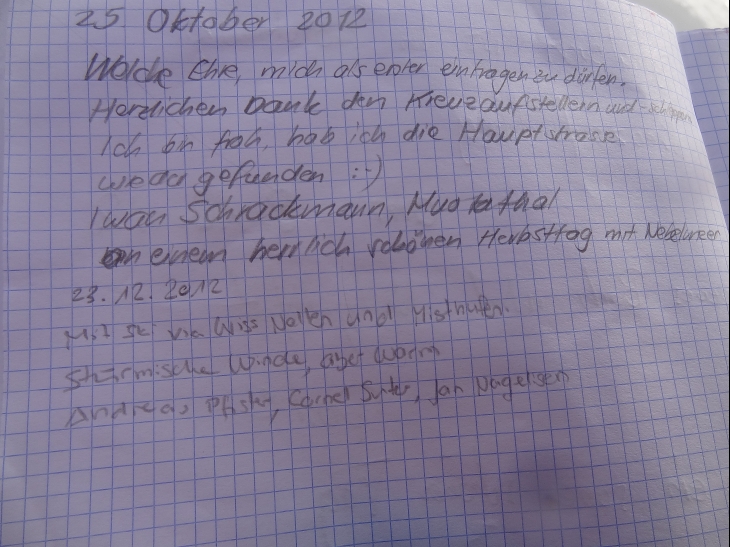 25 Oktober 2012
Welche Ehre, mich als erster eintragen zu dürfen.
Herzlichen Dank den Kreuzaufstellern und
Ich bin froh, hab ich die Hauptstrasse
wieder gefunden :-)
Iwan Schrackmann, Muotathal
an einem herrlich schönen Herbsttag mit Nebelmeer
23.12.2012
Mit Ski via Wiss Nollen und Misthufen.
Stürmische Winde, aber warm
Andreas Pfister, Cornel Suter, Jan